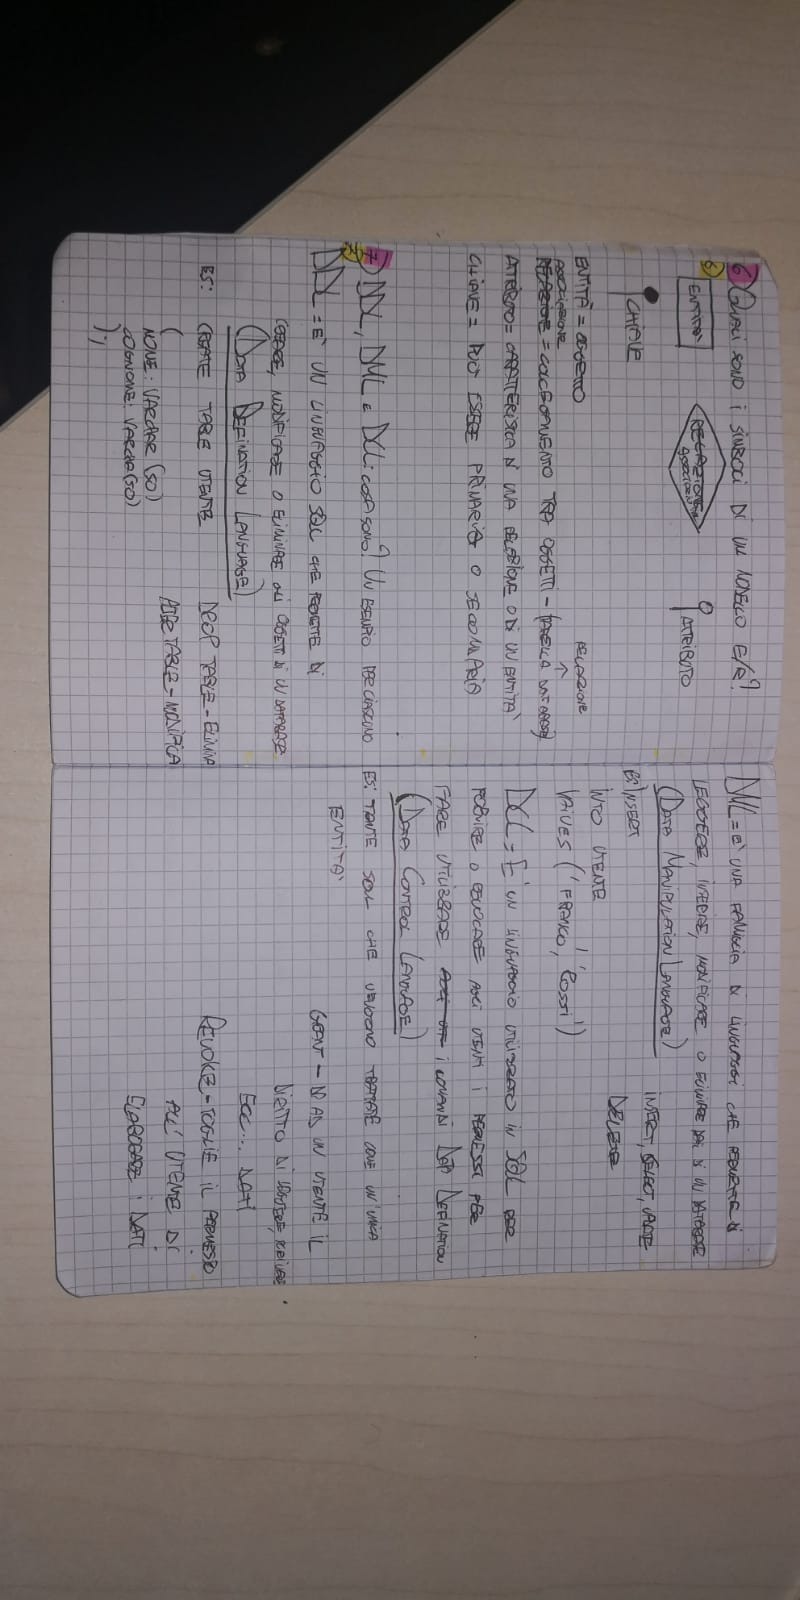 6) QUALI SONO I SIMBOLI DI UN MODELLO E/R?
6)
ENTITA'
RELAZIONE
ASSOCIAZIONE
ATTRIBUTO
CHIAVE
ENTITÀ = OGGETTO
RELAZIONE
ASSOCIAZIONE
RELAZIONE = COLLEGAMENTO TRA OGGETTI - (TABELLA DATABASE)
ATTRIBUTO = CARATTERISTICA DI UNA RELAZIONE O DI UN ENTITA'
CHIAVE = PUO' ESSERE PRIMARIA O SECONDARIA
7) DDL, DML E DCL: COSA SONO? UN ESEMPIO PER CIASCUNO
DDL = E' UN LINGUAGGIO SQL CHE PERMETTE DI
CREARE, MODIFICARE O ELIMINARE GLI OGGETTI DI UN DATABASE
(DATA DEFINATION LANGUAGE)
ES: CREATE TABLE UTENTE
(
NOME: VARCHAR (50)
COGNOME: VARCHAR (50)
);
DROP TABLE - ELIMINA
ALTER TABLE - MODIFICA
DML = E' UNA FAMIGLIA DI LINGUAGGI CHE PERMETTE DI
LEGGERE, INSERIRE, MODIFICARE O ELIMINARE DATI DI UN DATABASE
(DATA MANIPULATION LANGUAGE)
INSERT, SELECT, UPDATE
DELETE
ES: INSERT
INTO UTENTE
VALUES ('FRANCO', 'ROSSI')
DCL = E' UN LINGUAGGIO UTILIZZATO IN SQL PER
FORNIRE O REVOCARE AGLI UTENTI I PERMESSI PER
FARE UTILIZZARE I COMANDI DATA DEFINATION
(DATA CONTROL LANGUAGE)
ES: TANTE SQL CHE VENGONO TRATTATE COME UN'UNICA
ENTITA'
GRANT - DÀ AD UN UTENTE IL
DIRITTO DI LEGGERE, SCRIVERE
ECC... DATI
REVOKE - TOGLIE IL PERMESSO
ALL' UTENTE DI
ELABORARE I DATI